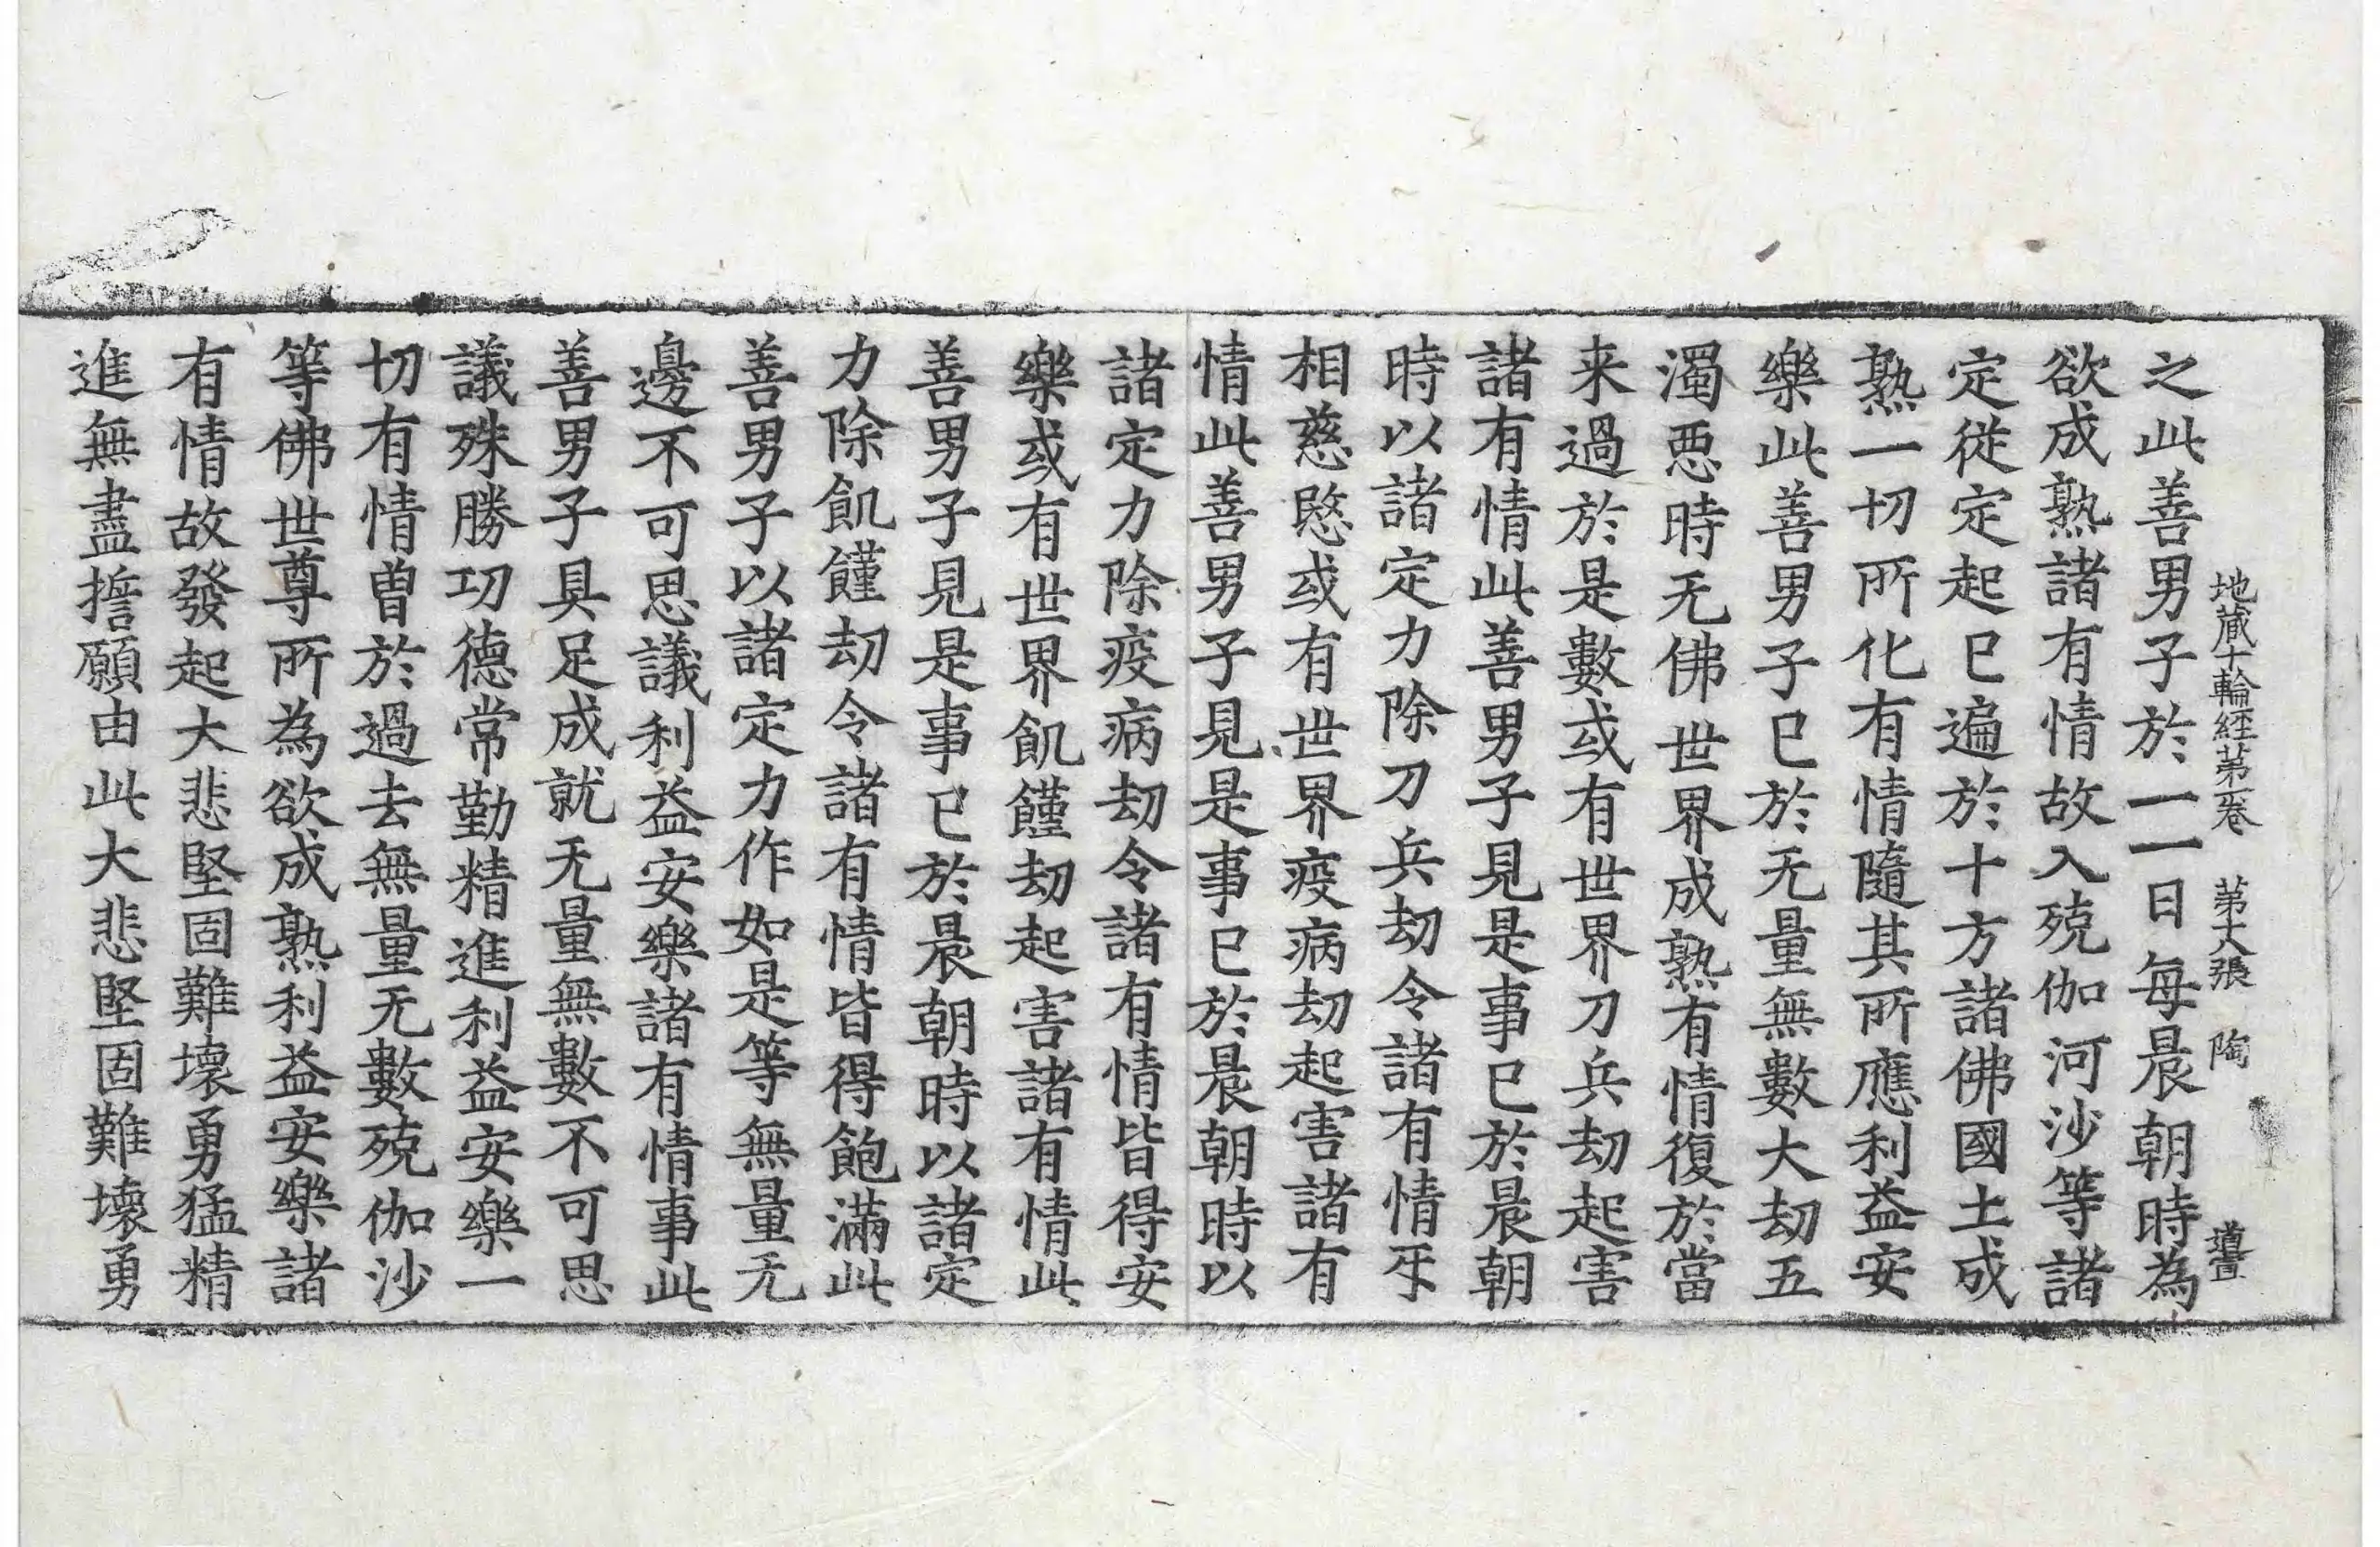 地藏十輪經第一卷 第大張 陶
之此善男子於一一日每晨朝時為
欲成熟諸有情故入殑伽河沙等諸
定從定起已遍於十方諸佛國土成
熟一切所化有情隨其所應利益安
樂此善男子已於无量無數大劫五
濁惡時无佛世界成熟有情復於當
来過於是數或有世界刀兵劫起害
諸有情此善男子見是事已於晨朝
時以諸定力除刀兵劫令諸有情㸦
相慈愍或有世界疫病劫起害諸有
情此善男子見是事已於晨朝時以
諸定力除疫病劫令諸有情皆得安
樂或有世界飢饉劫起害諸有情此
善男子見是事已於晨朝時以諸定
力除飢饉劫令諸有情皆得飽滿此
善男子以諸定力作如是等無量无
邊不可思議利益安樂諸有情事此
善男子具足成就无量無數不可思
議殊勝功德常勤精進利益安樂一
切有情曾於過去無量无數殑伽沙
等佛世尊所為欲成熟利益安樂諸
有情故發起大悲堅固難壞勇猛精
進無盡誓願由此大悲堅固難壞勇